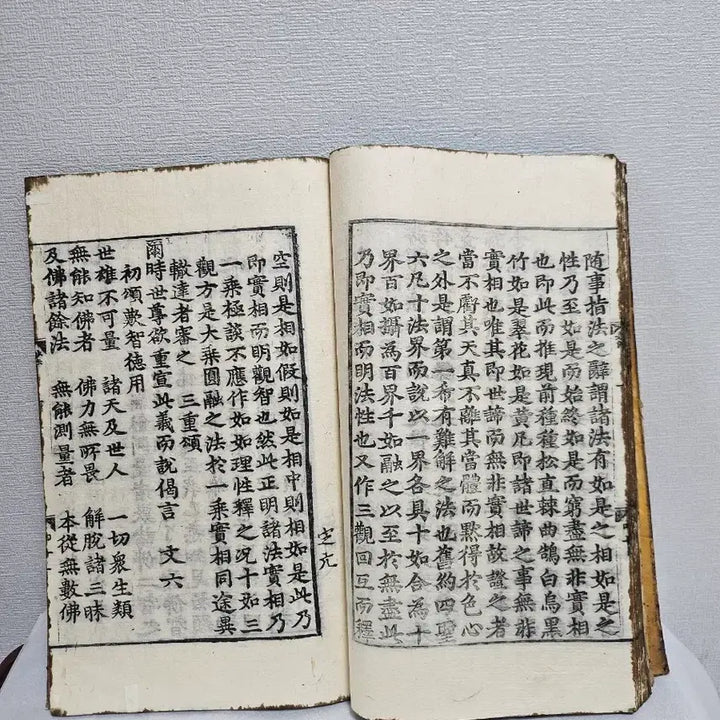 随事指法之辭謂諸法有如是之相如是之
性乃至如是而始終如是而窮盡無非實相
也即此而推現前種種松直棘曲鵠白烏黑
竹如是翠花如是黃凡即諸世諦之事無非
實相也唯其即世諦而無非實相故證之者
當不䴡其天真不離其當體而黙得於色心
之外是謂第一希有難解之法也舊約四聖
六凡十法界而說以一界各具十如合為十
界百如攝為百界千如融之以至於無盡此
乃即實相而明法性也又作三觀回互而釋
空則是相如假則如是相中則相如是此乃
即實相而明觀智也然此正明諸法實相乃
一乘極談不應作如如理性釋之况十如三
觀方是大乘圓融之法於一乘實相同途異
轍達者審之 三重頌
爾時世尊欲重宣此義而說偈言 文六
初頌歎智德用
世雄不可量 諸天及世人 一切衆生類
無能知佛者 佛力無所畏 解脫諸三昧
及佛諸餘法 無能測量者 本從無數佛